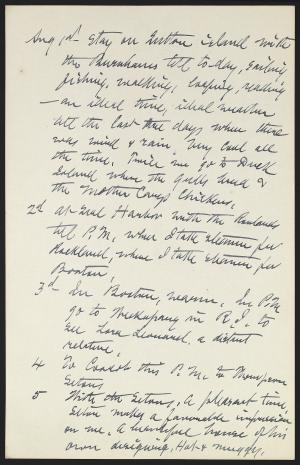 Aug 1st Stay on Sutton island with
the Burnhams till to-day, sailing
fishing, walking, loafing, reading
— an ideal time, ideal weather
till the last the days when there
was wind & rain. Very cool all
the time. Twice we go to Duck
Island where the gulls breed &
the Mother Careys Chickens.
2d at Seal Harbor with the
till P.M. when I take steamer for
Rockland, where I take steamer for
Boston,
3d In Boston, warm. In P.M.
go to Weekapaug in R.I. to
see Lora Leonard, a distant
relative,
4 To Conn this P.M. to Thompson
Setons
5 With the Setons, a pleasant time,
Seton makes a favorable impression
on me. A beautiful house of his
own designing, Hot & muggy.